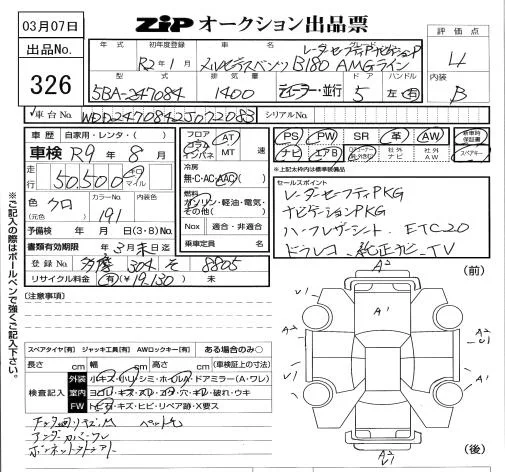 03月07日
ZiP オークション出品票
出品No.
326
年式 初年度登録 車名 グレード
R2年1月 メルセデスベンツ B180 AMGライン
レーダーセーフティP ナビゲーションP
型式 排気量 ディーラー・並行 ドア ハンドル
5BA-247084 1400 5 左・右
評価点
4
内装
B
車台No. WDD2470842J072083 シリアルNo.
車歴 自家用・レンタ・( )
車検 R9年8月
走行 50,500 km マイル
色 クロ (元色) カラーNo. 191 内装色
予備検 年 月 日(3・8)No.
書類有効期限 年3月末日迄
登録No. 多摩 304 そ 8805
リサイクル料金 有(¥19,130) 未
フロア コラム インパネ AT MT 速
冷房 無・C・AC・AAC( )
燃料 ガソリン・軽油・電気・その他( )
Nox 適合・非適合
乗車定員 名
PS PW SR 革 AW 新車時保証書
ナビ エアB 社外ナビ 社外AW スペアキー
※上記太枠内は標準装備品
セールスポイント
レーダーセーフティPKG
ナビゲーションPKG
ハーフレザーシート、ETC2.0
ドラレコ、純正ナビ・TV
※ご記入の際はボールペンで強くご記入下さい。
(注意事項)
スペアタイヤ[有] ジャッキ工具[有] AWロックキー[有] ある場合のみ○
長さ cm 幅 cm 高さ cm (車検証上の寸法)
検査記入
外装 小キズ・小凹・シミ・ホイルA・ドアミラー(A・ワレ)
室内 ヨゴレ・キズ・スレ・コゲ・穴・キレ・破れ・ウキ
FW トビ石・キズ・ヒビ・リペア跡・X要ス
アンダーカバーワレ
(前)
(後)
A2
V1
A1
A2
V1
A2
V1
A1
A2
V1